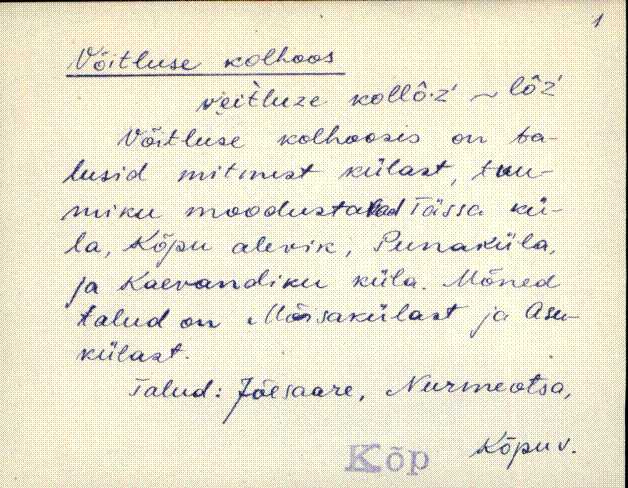 1
Võitluse kolhoos
vèitluze kollô·ź ~ lôź
Võitluse kolhoosis on ta-
lusid mitmest külast, tuu-
miku moodustavad Tässa kü-
la, Kõpu alevik, Punaküla,
ja Kaevandiku küla. Mõned
talud on Mõisakülast ja Asu-
külast.
Talud: Jõesaare, Nurmeotsa,
Kõp Kõpu v.